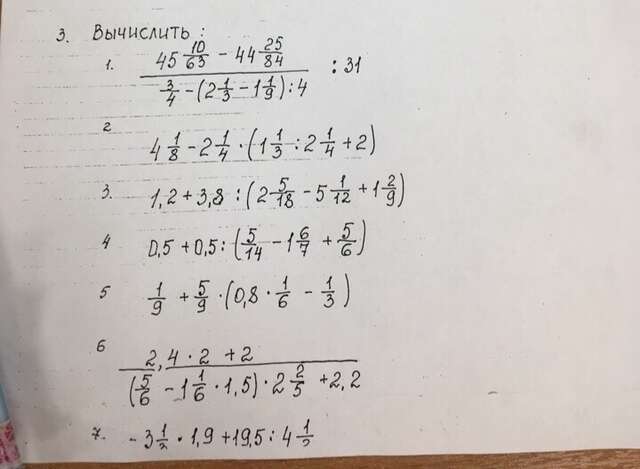 3. Вычислить:
1. (45 10/63 - 44 25/84) / (3/4 - (2 1/3 - 1 1/9) : 4) : 31
2 4 1/8 - 2 1/4 · (1 1/3 : 2 1/4 + 2)
3. 1,2 + 3,8 : (2 5/18 - 5 1/12 + 1 2/9)
4 0,5 + 0,5 : (5/14 - 1 6/7 + 5/6)
5 1/9 + 5/9 · (0,8 · 1/6 - 1/3)
6 (2,4 · 2 + 2) / ((5/6 - 1 1/6 · 1,5) · 2 2/5 + 2,2)
7. - 3 1/2 · 1,9 + 19,5 : 4 1/2